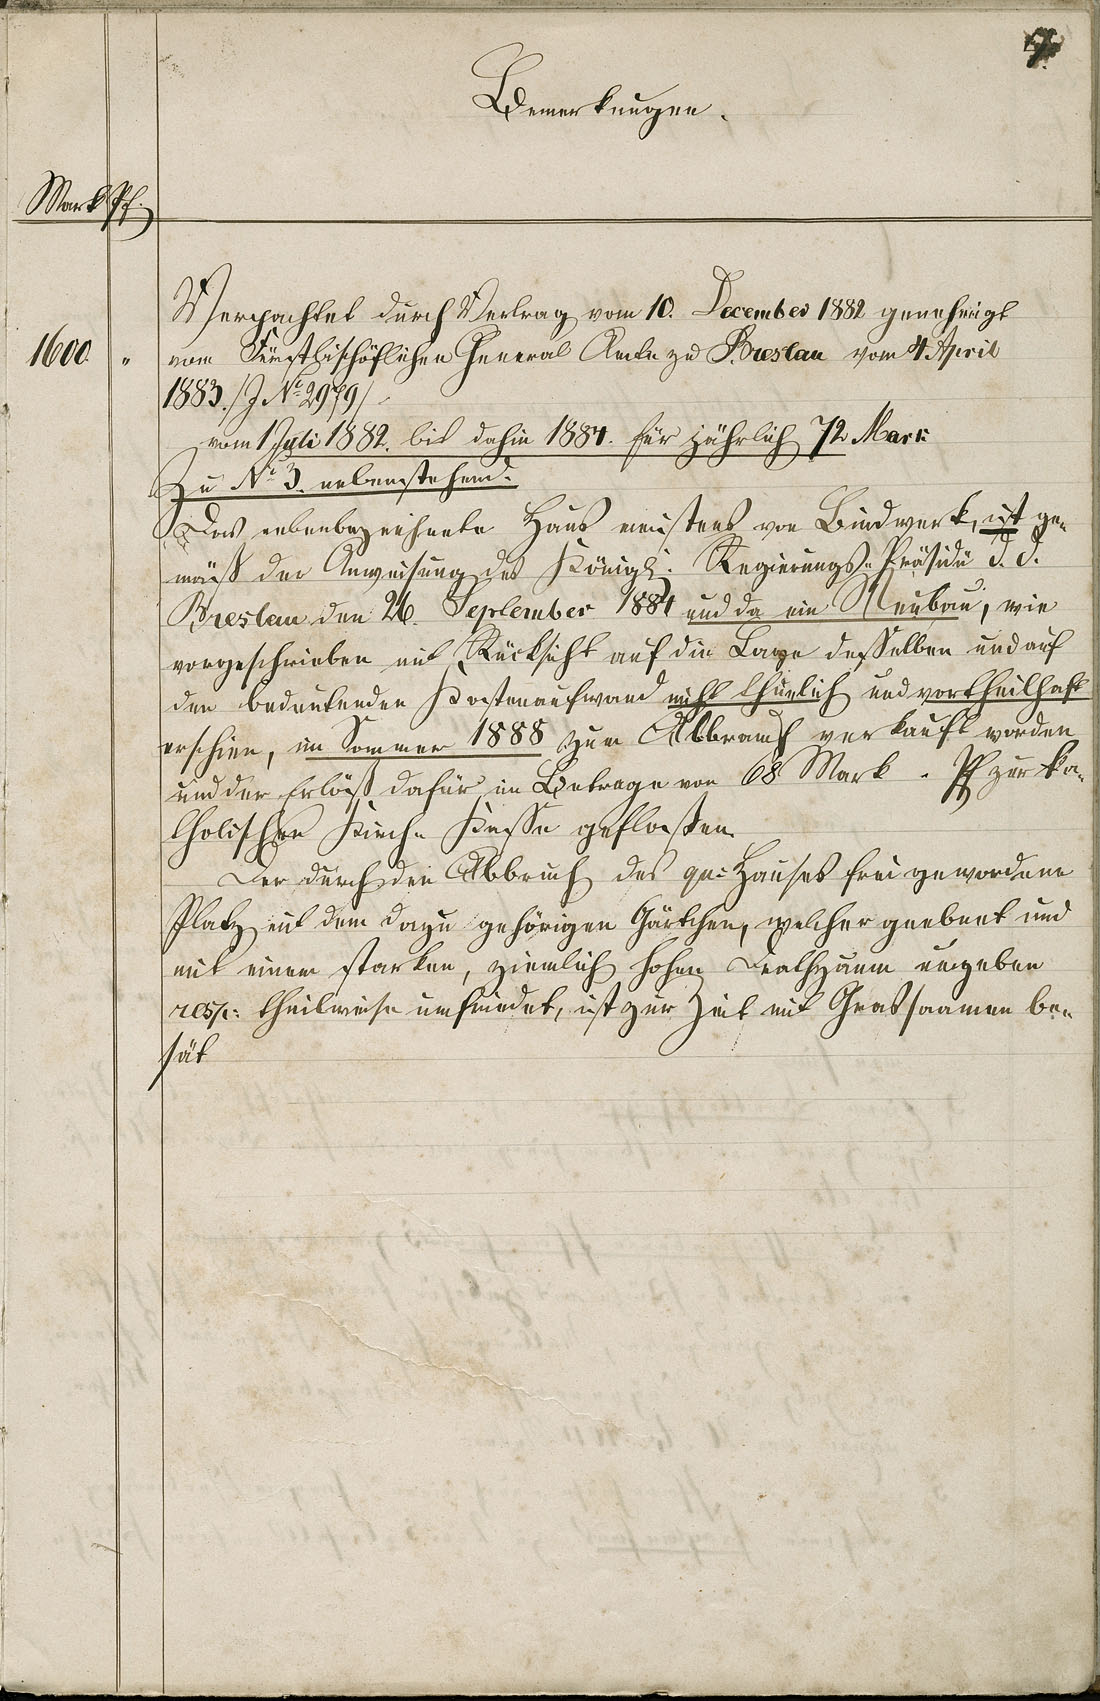 7.
Bemerkungen.
Mark Pf.
Verpachtet durch Vertrag vom 10. December 1882 genehmigt
1600. " vom Fürstbischöflichen General Amte zu Breslau vom 4 April
1883. /J. No 2979/
vom 1 Juli 1882. bis dahin 1884. für jährlich 72 Mark
Zu No 3. nebenstehend.
Das nebenbezeichnete Haus meistens von Bindwerk, ist ge-
mäß der Anweisung des Königl. Regierungs-Präsidii d. d.
Breslau den 26. September 1884 und da ein Neubau, wie
vorgeschrieben mit Rücksicht auf die Lage desselben und auf
den bedeutenden Kostenaufwand nicht thunlich und vortheilhaft
erschien, im Sommer 1888 zum Abbruch verkauft worden
und der Erlös dafür im Betrage von 68 Mark - Pf zur ka-
tholischen Kirch. Kasse geflossen.
Der durch den Abbruch des qu: Hauses frei gewordene
Platz mit dem dazu gehörigen Gärtchen, welcher geebnet und
mit einem starken, ziemlich hohen Drathzaun umgeben
resp: theilweise umfriedet, ist zur Zeit mit Grassaamen be-
sät